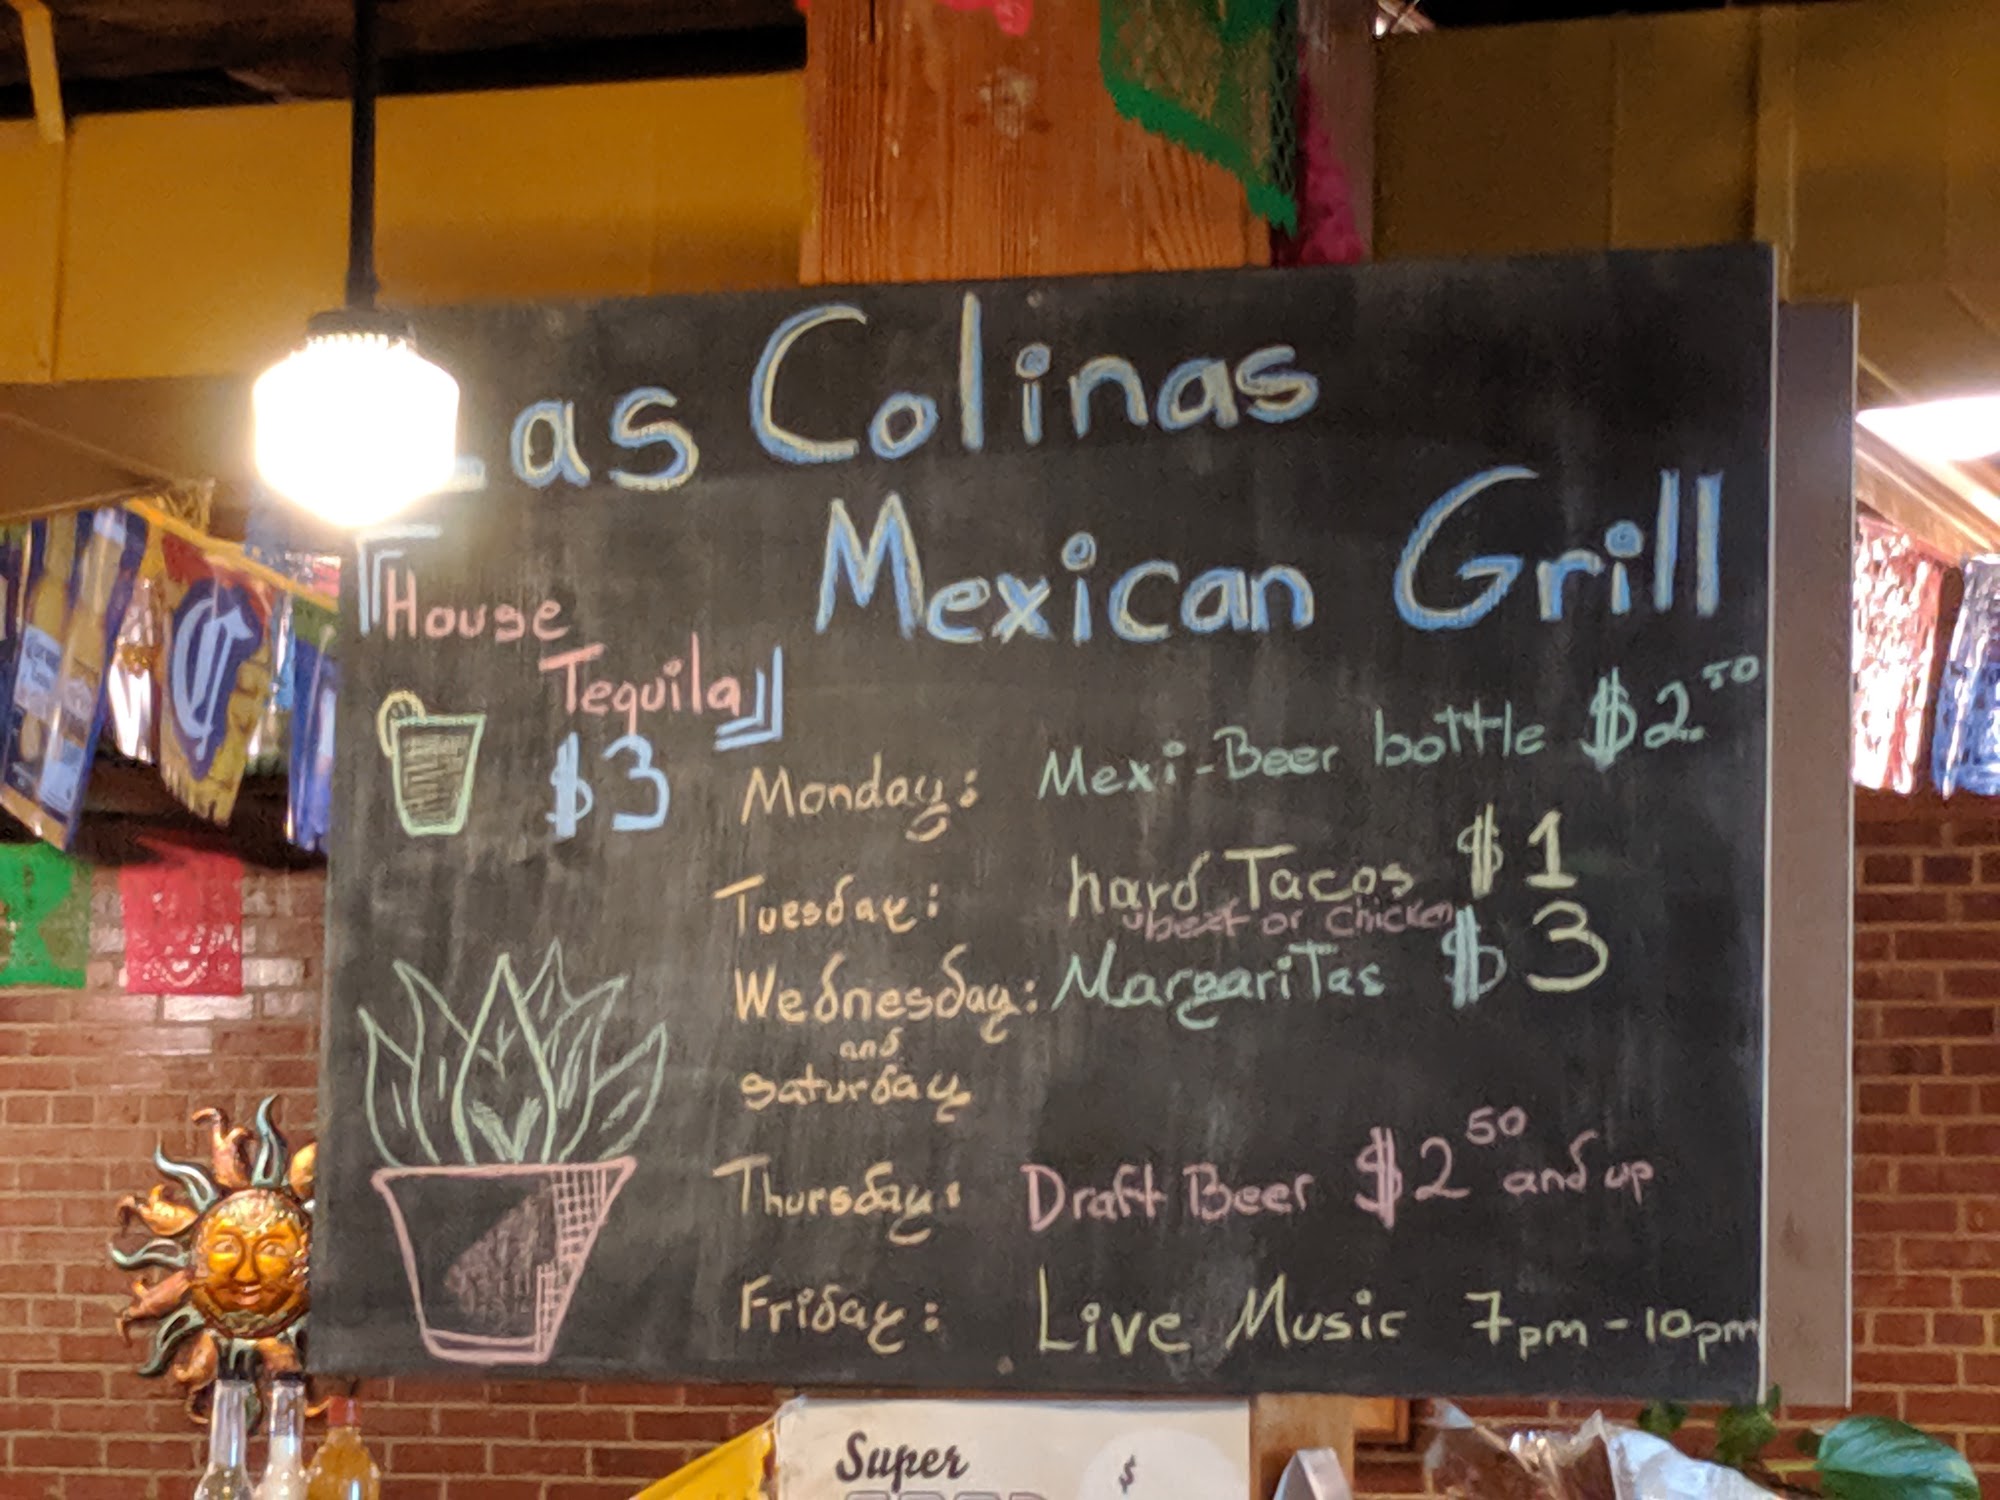 Las Colinas
Mexican Grill
House
Tequila
$3
Monday: Mexi-Beer bottle $2.50
Tuesday: hard Tacos $1
beef or chicken
Wednesday: Margaritas $3
and
Saturday
Thursday: Draft Beer $2 50 and up
Friday: Live Music 7pm-10pm
Super
$